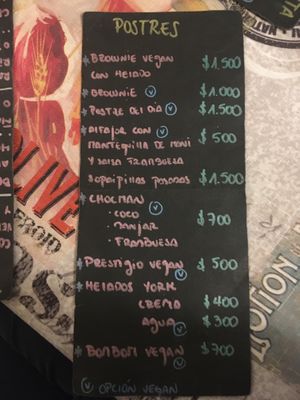 POSTRES
* BROWNIE VEGAN $1.500
CON HELADO
* BROWNIE (V) $1.000
* POSTRE DEL DÍA (V) $1.500
* ALFAJOR CON (V) $500
MANTEQUILLA DE MANI
Y SALSA FRAMBUESA
SOPAIPILLAS PASADAS $1.500
* CHOCMAN (V) $700
· COCO
· MANJAR
· FRAMBUESA
* PRESTIGIO VEGAN (V) $500
* HELADOS YORK
CREMA $400
AGUA (V) $300
* BOMBOM VEGAN (V) $700
(V) OPCIÓN VEGAN
OLIVE